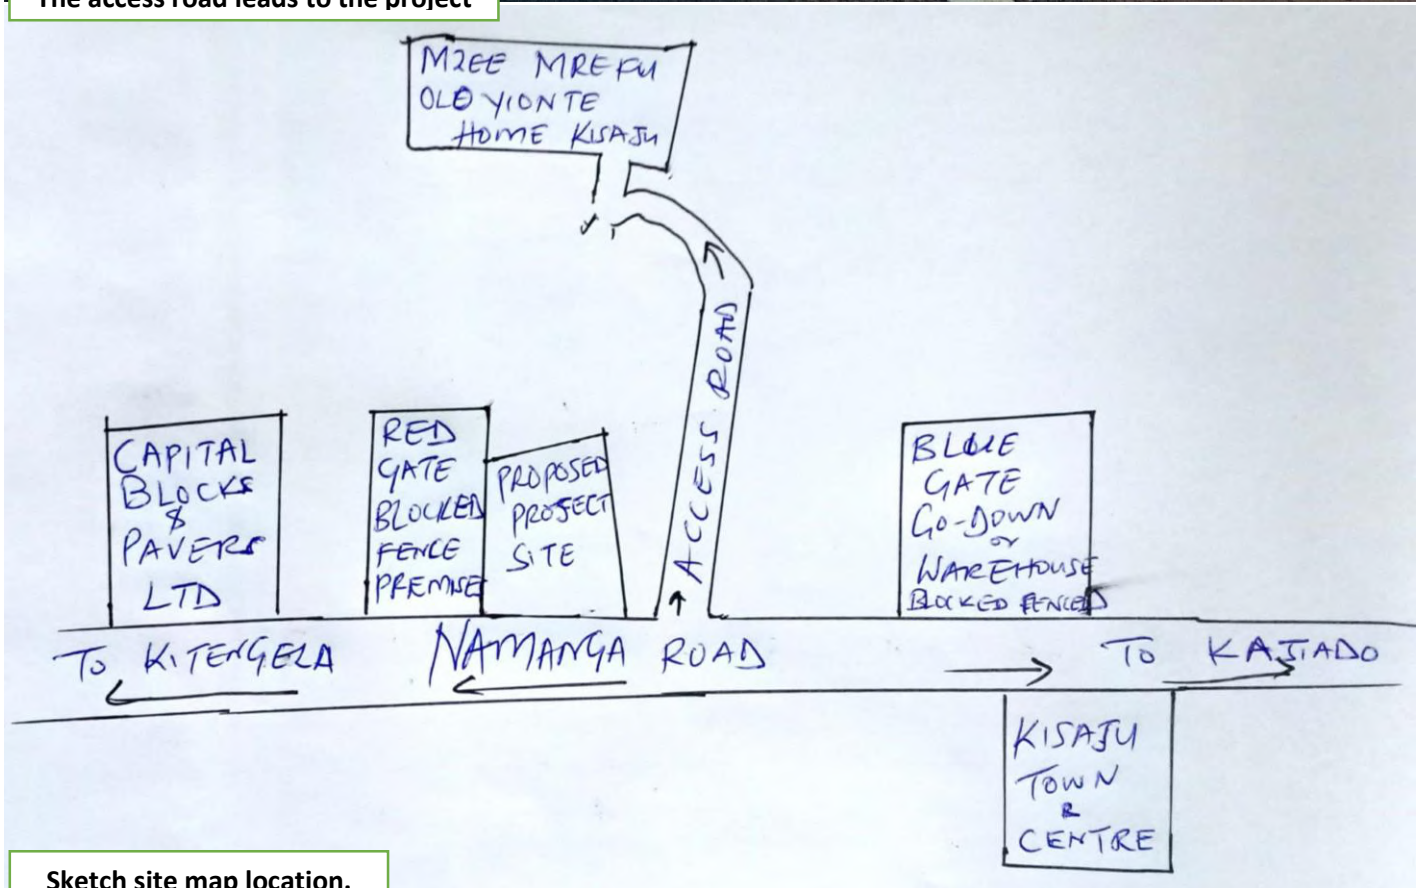 The access road leads to the project
MZEE MREFU
OLO YIONTE
HOME KISAJU
ACCESS ROAD
CAPITAL
BLOCKS
&
PAVERS
LTD
RED
GATE
BLOCKED
FENCE
PREMISE
PROPOSED
PROJECT
SITE
BLUE
GATE
GO-DOWN
or
WAREHOUSE
BLOCKED FENCED
TO KITENGELA NAMANGA ROAD TO KAJIADO
KISAJU
TOWN
&
CENTRE
Sketch site map location.